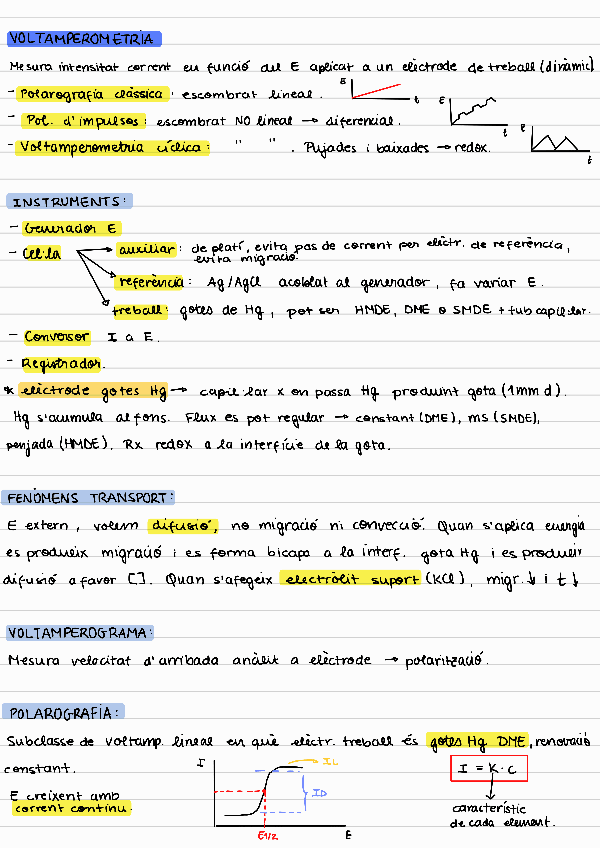 VOLTAMPEROMETRIA
Mesura intensitat corrent en funció del E aplicat a un elèctrode de treball (dinàmic)
- Polarografia clàssica: escombrat lineal. E t
- Pol. d'impulsos: escombrat NO lineal → diferencial. E t
- Voltamperometria cíclica: " " . Pujades i baixades → redox. E t
INSTRUMENTS:
- Generador E
- Cel·la → auxiliar: de platí, evita pas de corrent per elèctr. de referència,
evita migració.
referència: Ag/AgCl acoblat al generador, fa variar E.
treball: gotes de Hg, pot ser HMDE, DME o SMDE + tub capil·lar.
- Conversor I a E.
- Registrador.
* elèctrode gotes Hg → capil·lar x on passa Hg produint gota (1mm d).
Hg s'acumula al fons. Flux es pot regular → constant (DME), ms (SMDE),
penjada (HMDE). Rx redox a la interfície de la gota.
FENÒMENS TRANSPORT:
E extern, volem difusió, no migració ni convecció. Quan s'aplica energia
es produeix migració i es forma bicapa a la interf. gota Hg i es produeix
difusió a favor []. Quan s'afegeix electròlit suport (KCl), migr.↓ i t↓
VOLTAMPEROGRAMA:
Mesura velocitat d'arribada anàlit a elèctrode → polarització.
POLAROGRAFIA:
Subclasse de voltamp. lineal en què elèctr. treball és gotes Hg DME, renovació
constant.
E creixent amb
corrent continu.
I IL
ID
E1/2 E
I = K · C
característic
de cada element.